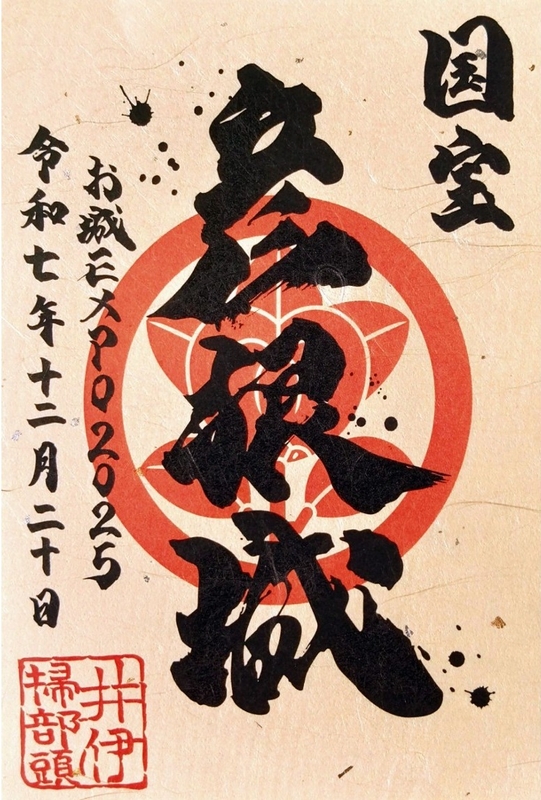 国宝
彦根城
お城EXPO2025
令和七年十二月二十日
井伊
掃部頭